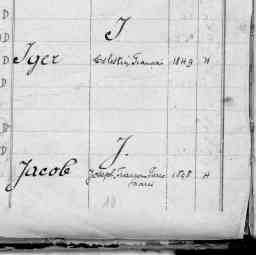 D
I
D
Iger Célestin, François 1849 H
D
D
D
J.
D
Jacob Joseph, Francois Pierre 1898 H
Marie
10